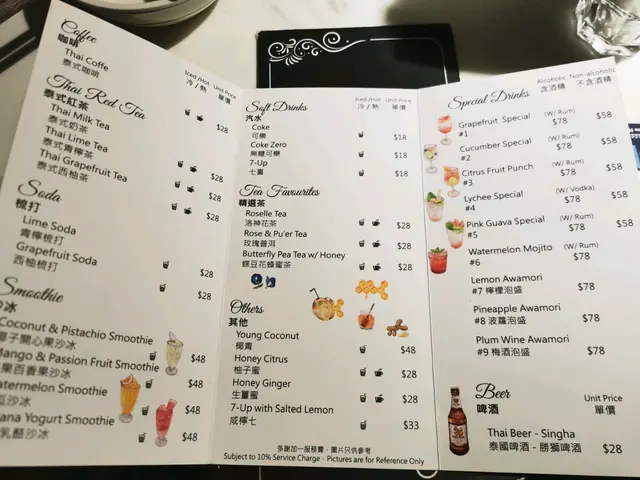 Coffee
咖啡
Thai Coffe
泰式咖啡
Iced /Hot Unit Price
冷 / 熱 單價
Thai Red Tea
泰式紅茶
Thai Milk Tea $28
泰式奶茶
Thai Lime Tea
泰式青檸茶 $28
Thai Grapefruit Tea $28
泰式西柚茶 $28
Soda
梳打
Lime Soda
青檸梳打 $28
Grapefruit Soda
西柚梳打 $28
Smoothie
沙冰
Coconut & Pistachio Smoothie
椰子開心果沙冰 $48
Mango & Passion Fruit Smoothie
果百香果沙冰 $48
Watermelon Smoothie
瓜沙冰 $48
ana Yogurt Smoothie
乳酪沙冰 $48
Soft Drinks
汽水
Iced /Hot Unit Price
冷 / 熱 單價
Coke $18
可樂
Coke Zero $18
無糖可樂
7-Up $18
七喜
Tea Favourites
精選茶
Roselle Tea $28
洛神花茶
Rose & Pu'er Tea $28
玫瑰普洱
Butterfly Pea Tea w/ Honey $28
蝶豆花蜂蜜茶
Others
其他
Young Coconut $48
椰青
Honey Citrus $28
柚子蜜
Honey Ginger $28
生薑蜜
7-Up with Salted Lemon $33
咸檸七
多謝加一服務費，圖片只供參考
Subject to 10% Service Charge · Pictures are for Reference Only
Special Drinks
Alcoholic Non-alcoholic
含酒精 不含酒精
Grapefruit Special (W/ Rum) $58
#1 $78
Cucumber Special (W/ Rum) $58
#2 $78
Citrus Fruit Punch (W/ Rum) $58
#3 $78
Lychee Special (W/ Vodka) $58
#4 $78
Pink Guava Special (W/ Rum) $58
#5 $78
Watermelon Mojito (W/ Rum)
#6 $78
Lemon Awamori
#7 檸檬泡盛 $78
Pineapple Awamori
#8 菠蘿泡盛 $78
Plum Wine Awamori
#9 梅酒泡盛 $78
Beer
啤酒
Unit Price
單價
Thai Beer - Singha
泰國啤酒 - 勝獅啤酒 $28